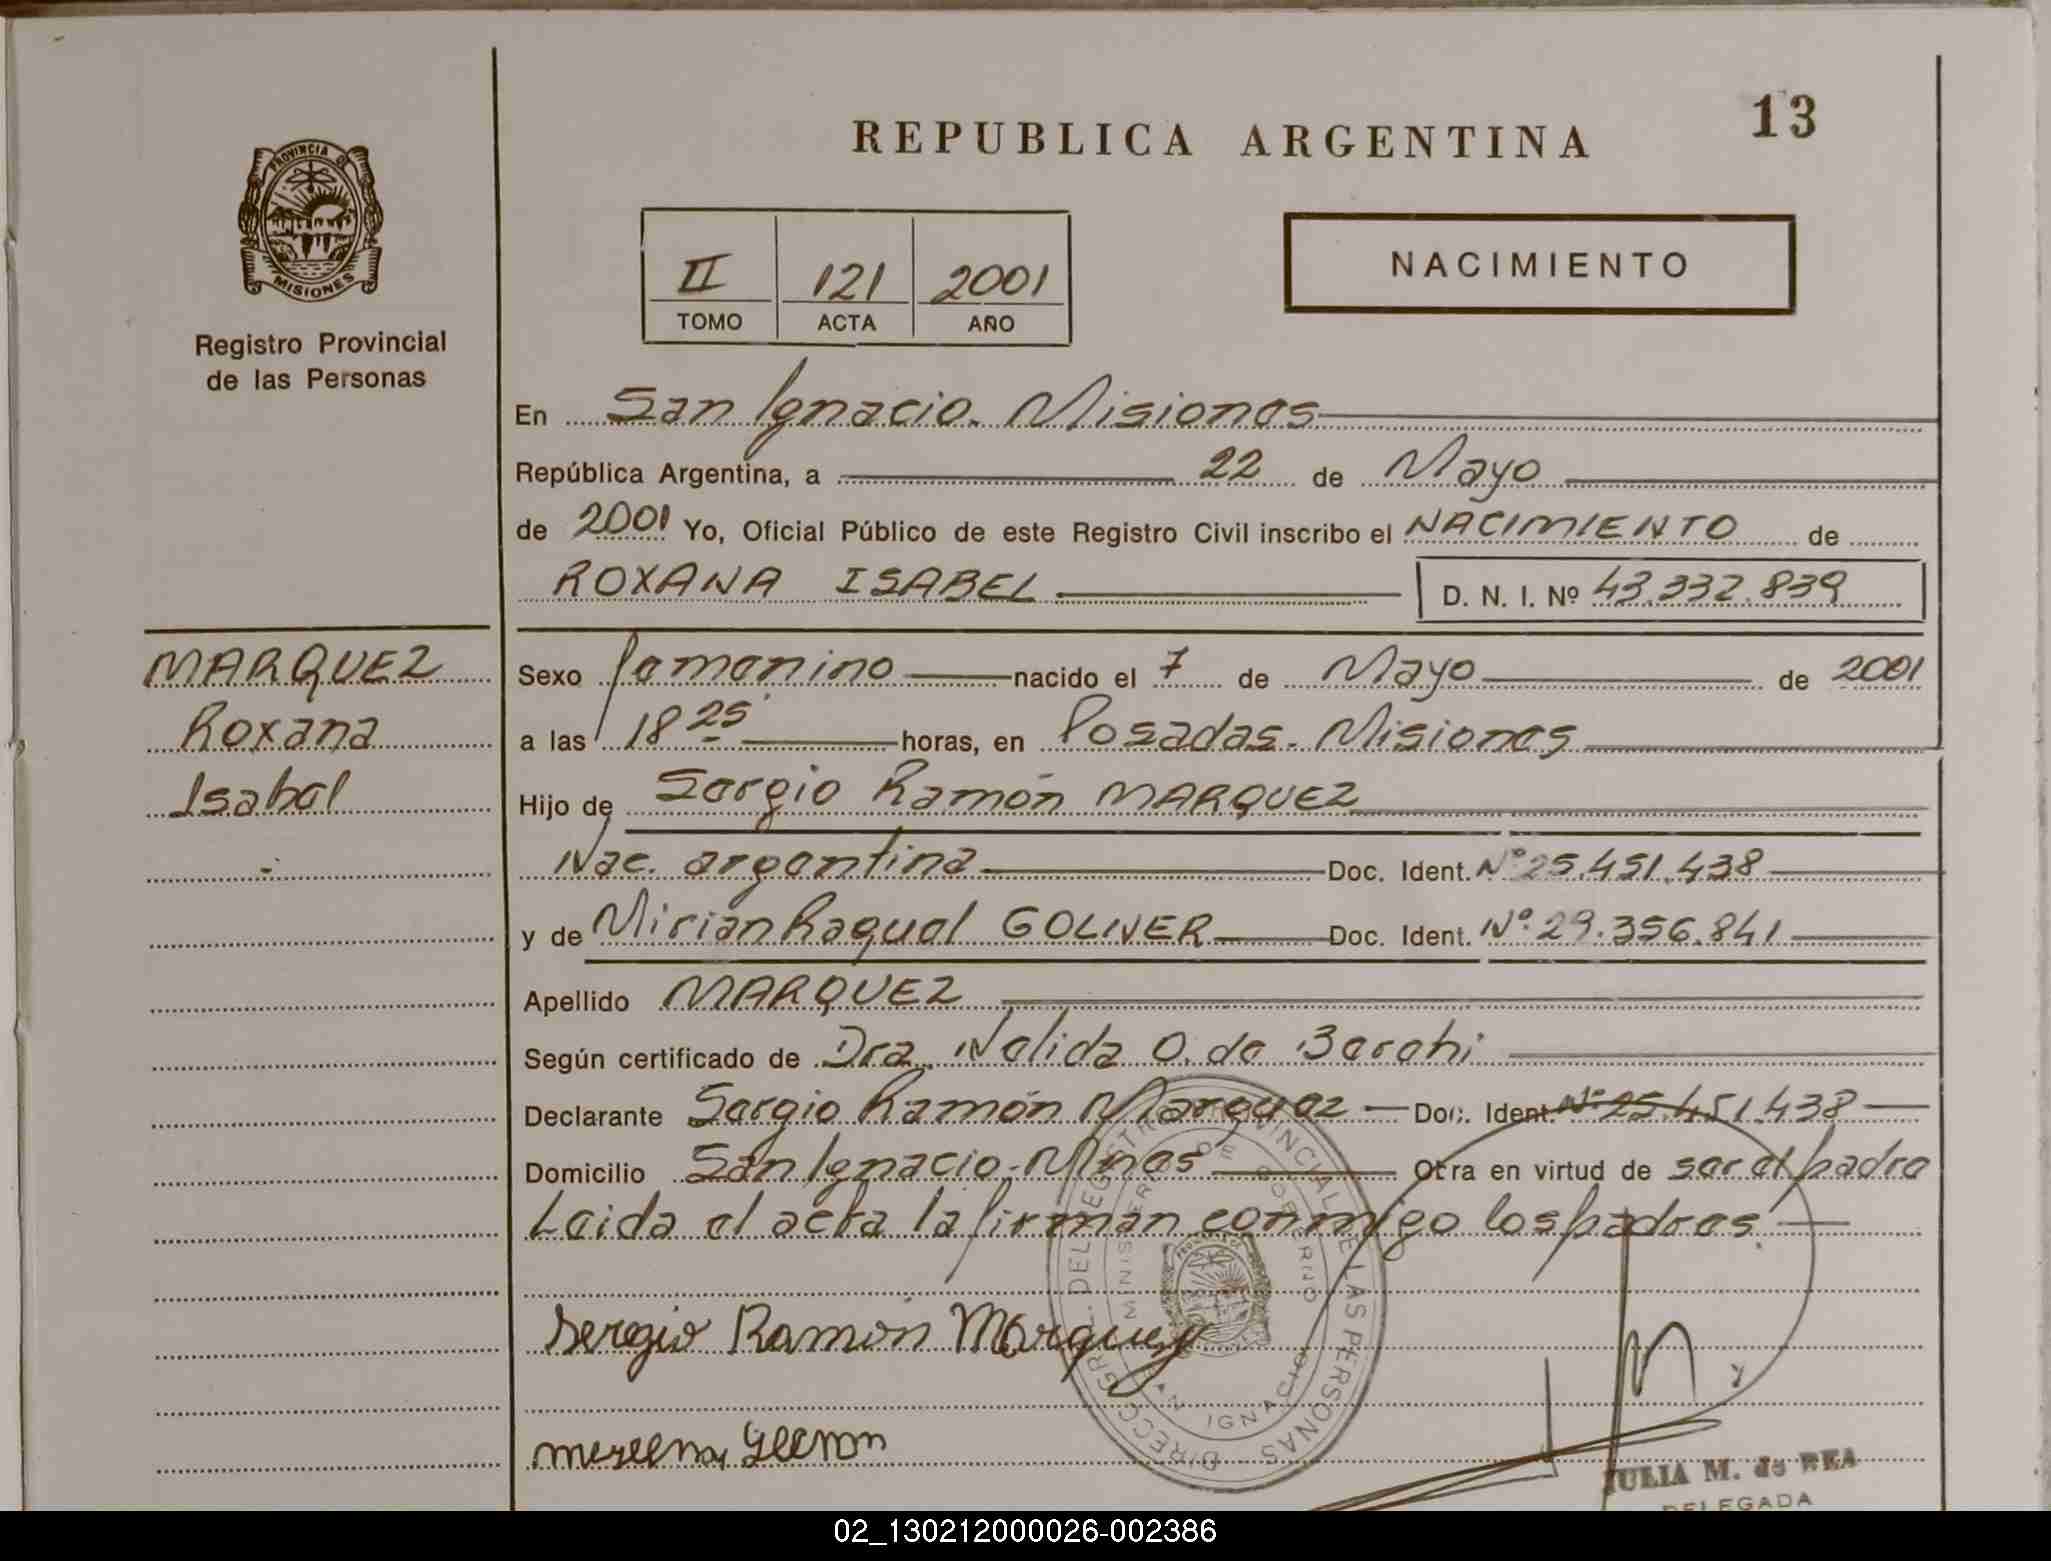 REPUBLICA ARGENTINA
13
PROVINCIA DE
MISIONES
Registro Provincial
de las Personas
II 121 2001
TOMO ACTA AÑO
NACIMIENTO
En San Ignacio. Misiones
República Argentina, a 22 de Mayo
de 2001 Yo, Oficial Público de este Registro Civil inscribo el NACIMIENTO de
ROXANA ISABEL D. N. I. Nº 43.332.839
MARQUEZ
Roxana
Isabel
Sexo femenino nacido el 7 de Mayo de 2001
a las 18 25 horas, en Posadas. Misiones
Hijo de Sergio Ramón MARQUEZ
Nac. argentina Doc. Ident. Nº 25.451.438
y de Mirian Raquel GOLINER Doc. Ident. Nº 29.356.841
Apellido MARQUEZ
Según certificado de Dra. Nelida O. de Berehi
Declarante Sergio Ramón Marquez Doc. Ident. Nº 25.451.438
Domicilio San Ignacio. Mnes Otra en virtud de ser el padre
Leida el acta la firman conmigo los padres.
Sergio Ramón Marquez
DIRECC. GRL. DEL REGISTRO PROVINCIAL DE LAS PERSONAS
MINISTERIO DE GOBIERNO
SAN IGNACIO
JULIA M. de REA
DELEGADA
02_130212000026-002386